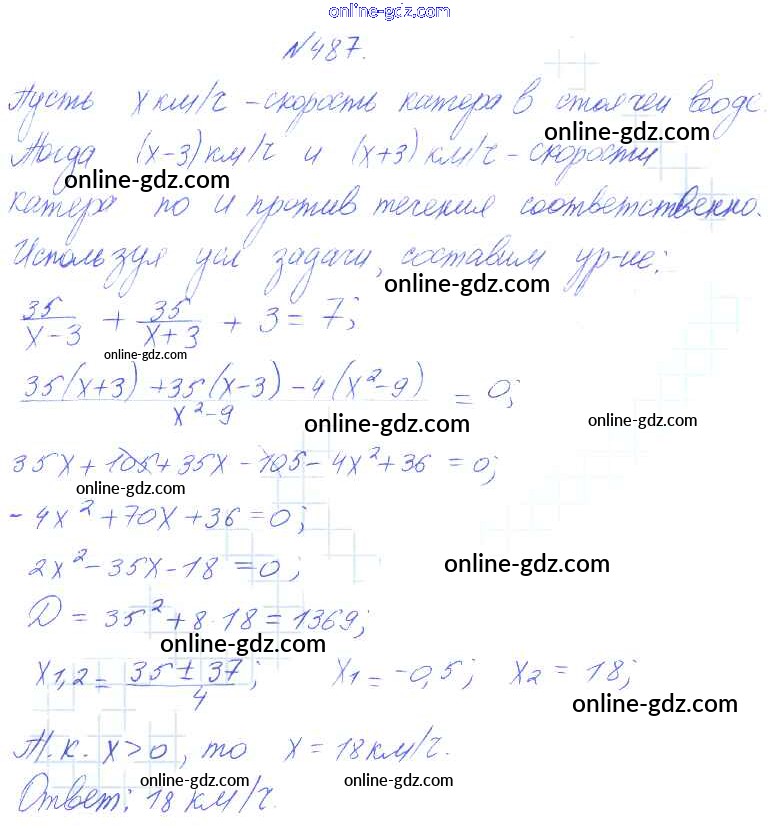 online-gdz.com
№487.
Пусть x км/ч - скорость катера в стоячей воде.
Тогда (x-3) км/ч и (x+3) км/ч - скорости
online-gdz.com
online-gdz.com
катера по и против течения соответственно.
Используя усл задачи, составим ур-ие:
online-gdz.com
35/(x-3) + 35/(x+3) + 3 = 7;
online-gdz.com
(35(x+3) + 35(x-3) - 4(x²-9))/(x²-9) = 0;
online-gdz.com
online-gdz.com
35x + 105 + 35x - 105 - 4x² + 36 = 0;
online-gdz.com
-4x² + 70x + 36 = 0;
2x² - 35x - 18 = 0;
online-gdz.com
D = 35² + 8·18 = 1369;
online-gdz.com
x1,2 = (35 ± 37)/4; x1 = -0,5; x2 = 18;
online-gdz.com
Т.к. x > 0, то x = 18 км/ч.
online-gdz.com
online-gdz.com
Ответ: 18 км/ч.